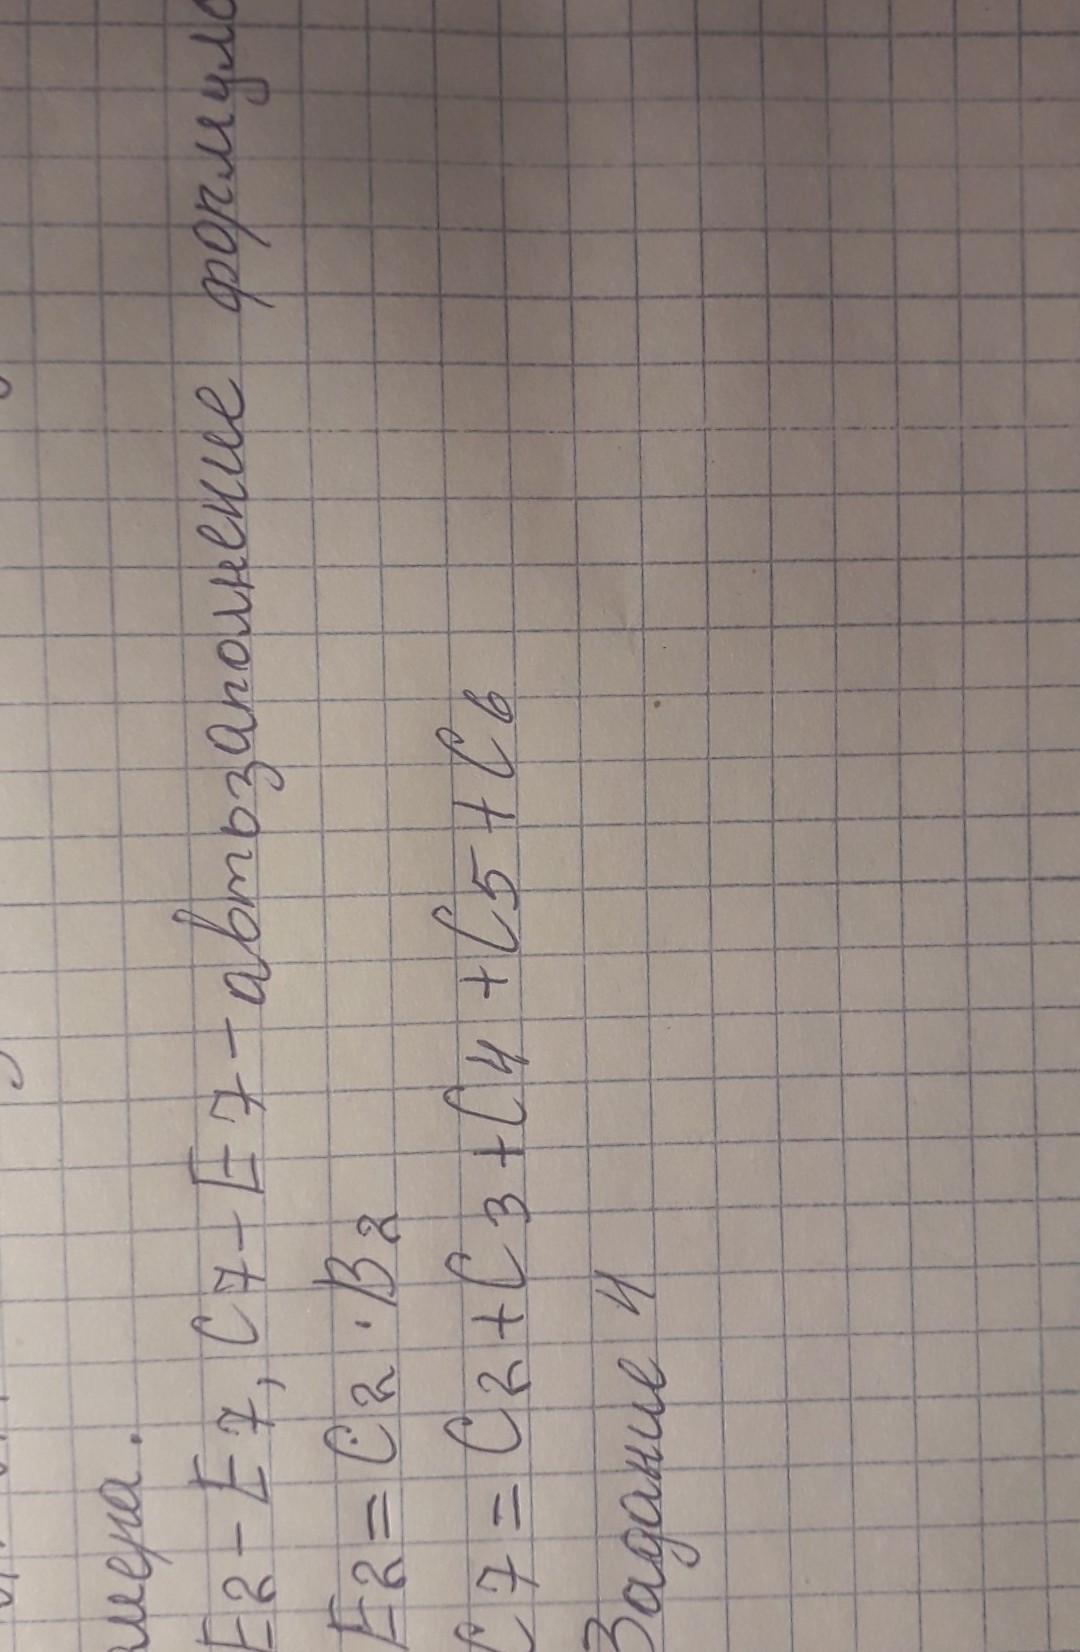 мера.
E2 - E7, C7 - E7 - автозаполнение формул
E2 = C2 · B2
C7 = C2 + C3 + C4 + C5 + C6
Задание 4